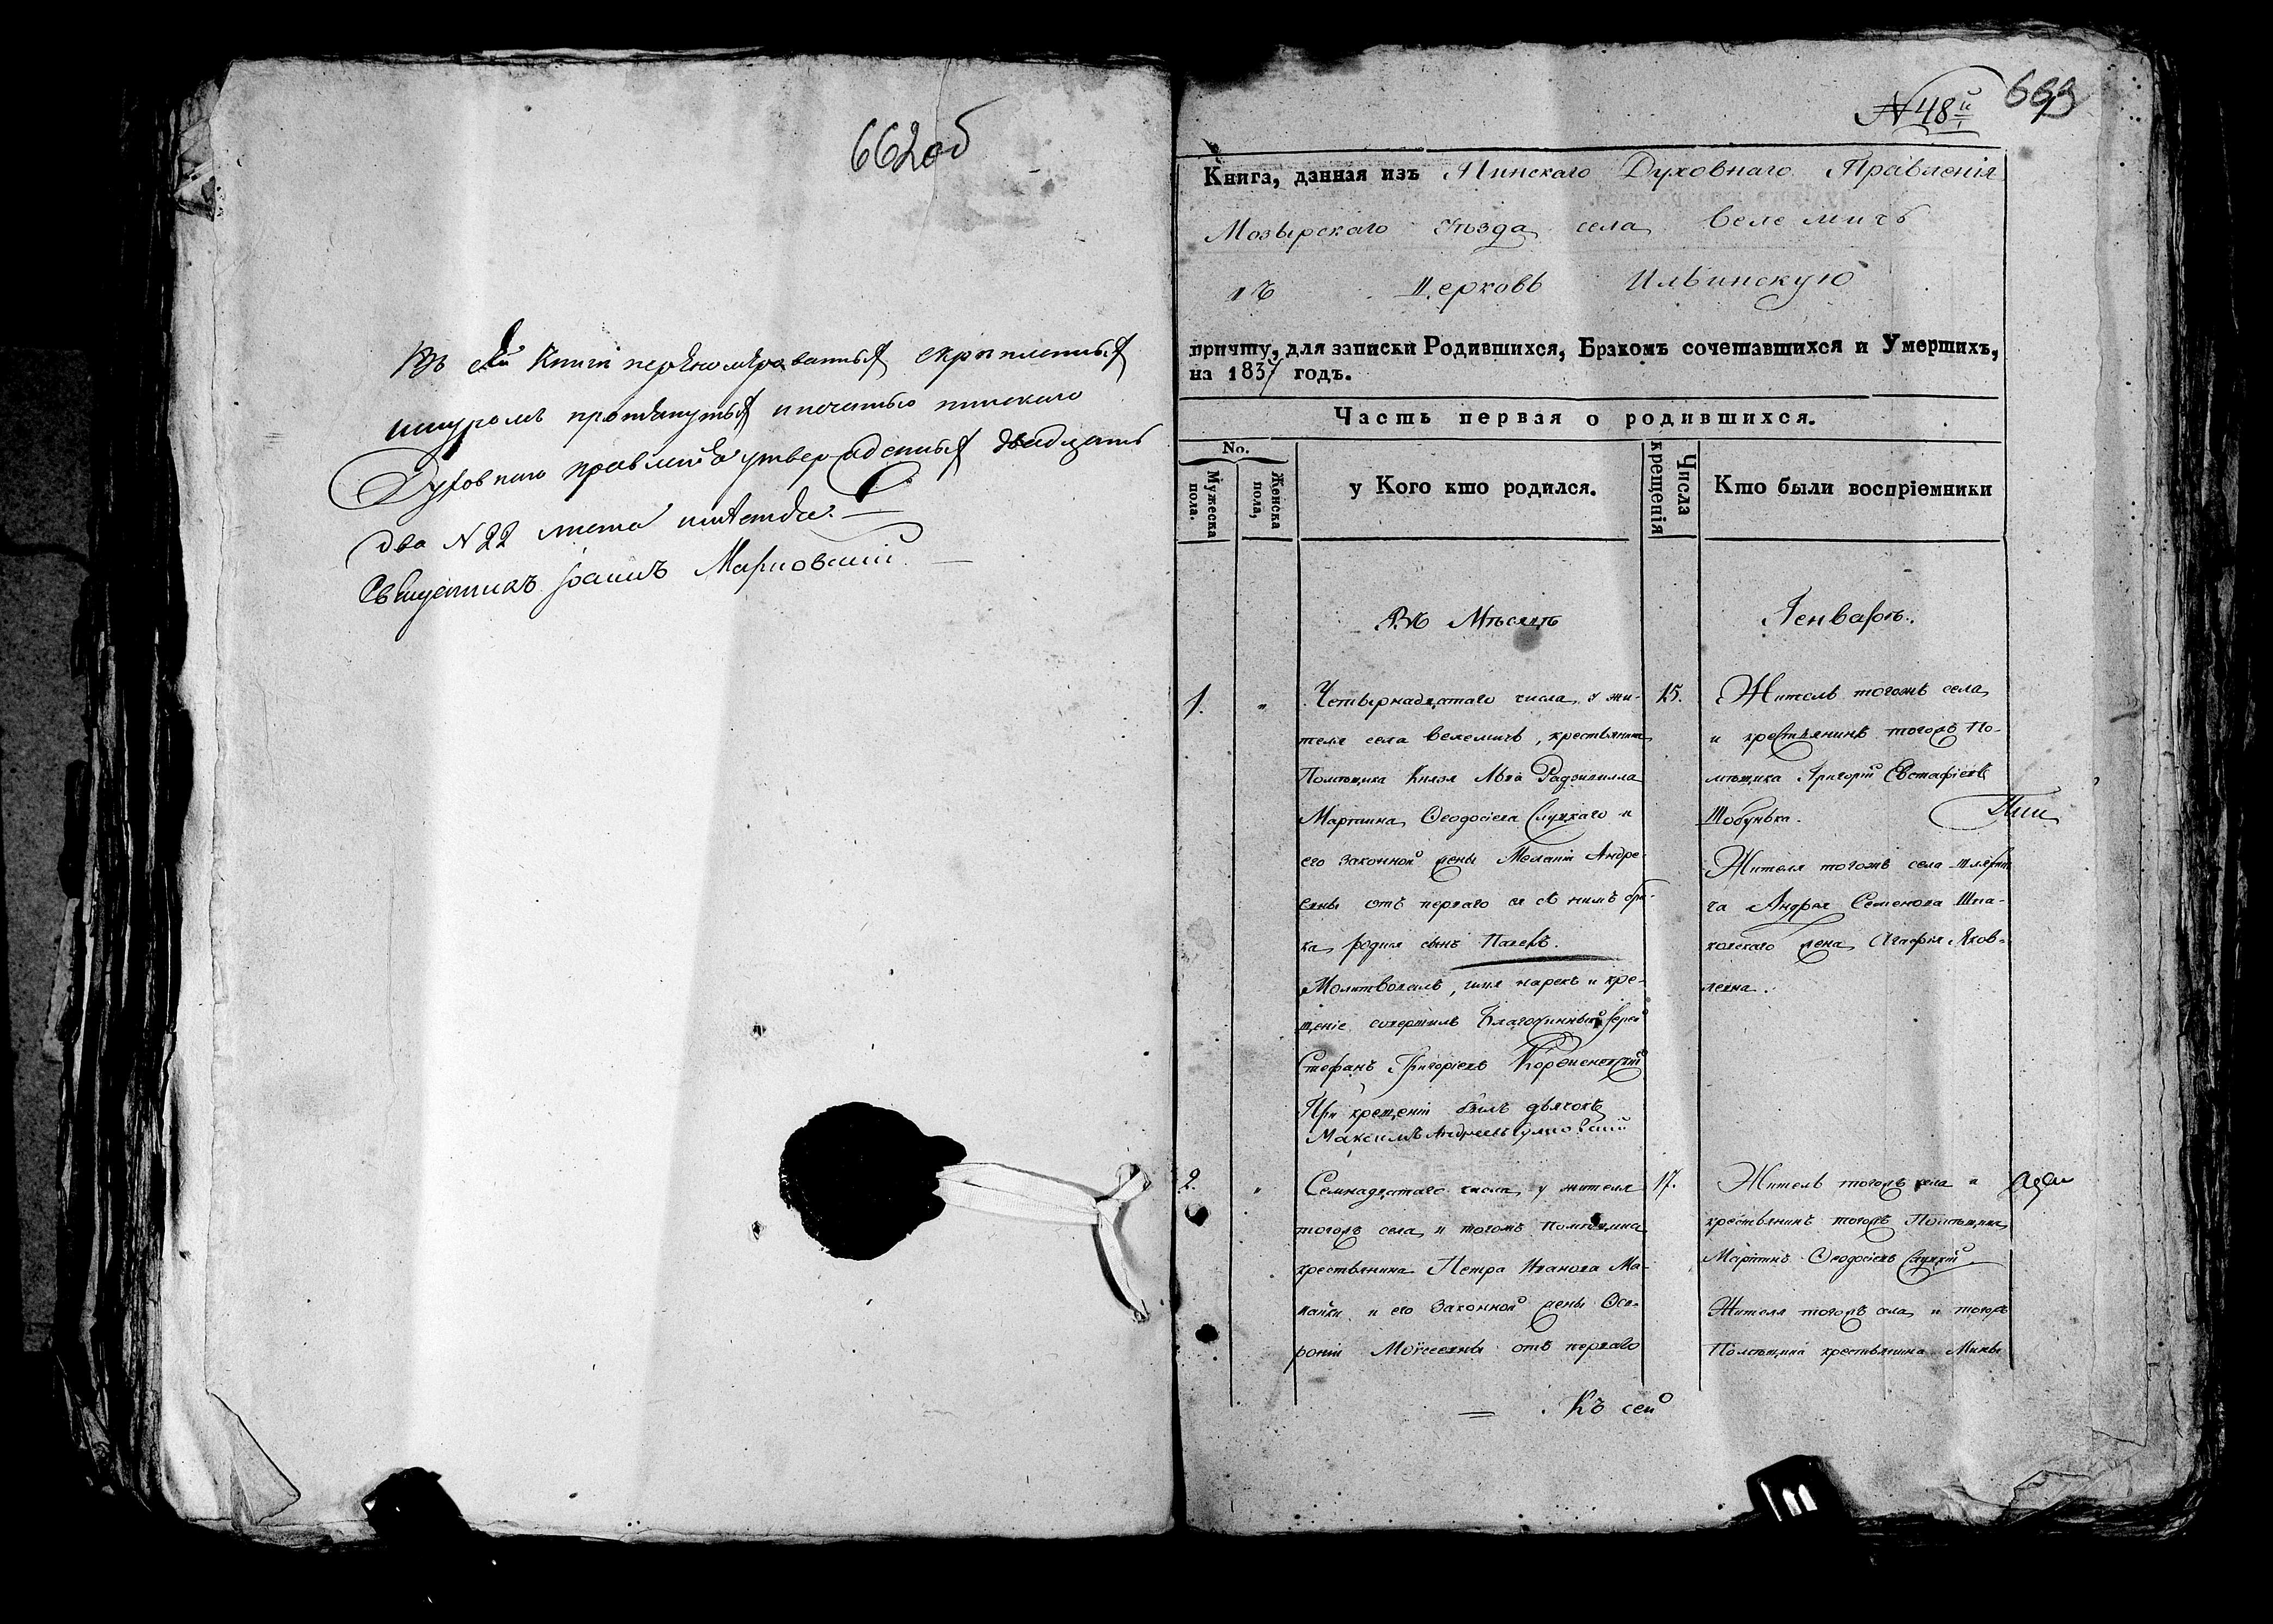 662 об
Въ сей Книги перенумерованныя скрепленныя
шнуромъ протянутыя и печатью пинскаго
Духовнаго правленія утвержденныя двадцать
два N 22 листа
Священникъ Іоаннъ
N 48й
663
Книга, данная изъ Пинскаго Духовнаго Правленія
Мозырскаго уѣзда села Велемичъ
въ Церковь Ильинскую
причту, для записки Родившихся, Бракомъ сочетавшихся и Умершихъ,
на 1837 годъ.
Часть первая о родившихся.
No.
Мужеска пола.
Женска пола,
у Кого кто родился.
Числа крещенія
Кто были воспріемники
Въ Мѣсяцѣ
Генварѣ.
1.
Четырнадцатаго числа, у жи-
теля села Велемичъ, крестьянина
Помѣщика Князя Льва Радзивилла
Мартина Ѳеодосіева Слуцкаго и
его законной жены Меланіи Андре-
евны отъ перваго ея съ нимъ бра-
ка, родился сынъ Павелъ.
Молитвовалъ, имя нарекъ и кре-
щеніе совершилъ Благочинный Іерей
Стефанъ Григоріевъ
При крещеніи былъ дьячокъ
Максимъ Андреевъ
15.
Житель тогожъ села
и крестьянинъ тогожъ По-
мѣщика Григорій Евстафіевъ
Шобунька.
Жителя тогожъ села шляхти-
ча Андрея Семенова Шпа-
ковскаго жена, Агафія Яков-
левна.
2.
Семнадцатаго числа, у жителя
тогожъ села, и тогожъ Помѣщика
крестьянина Петра Иванова Ма-
и его законной жены Фев-
роніи Моисеевны отъ перваго
17.
Житель тогожъ села и
крестьянинъ тогожъ Помѣщика
Мартинъ Ѳеодосіевъ Слуцкій.
Жителя тогожъ села, и тогожъ
Помѣщика крестьянина Мины
Къ сей